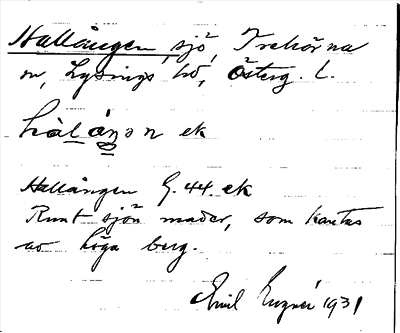 Hallången, sjö, Trehörna
sn, Lysings hd, Österg. l.
hàlåŋən ek
Hallången G. 44. ek
Runt sjön mader, som kantas
av höga berg.
Emil 1931